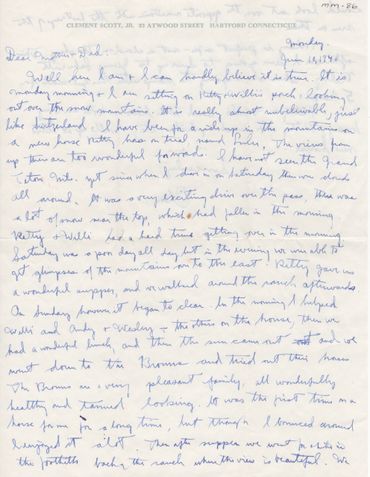 mm-86
CLEMENT SCOTT, JR. 21 ATWOOD STREET HARTFORD CONNECTICUT
Monday.
June 14, 194
Dear Mother + Dad -
Well here I am + I can hardly believe it is true. It is
Monday morning + I am sitting on Hetty + Willi's porch - looking
out over the snow mountains. It is really almost unbelievable, just
like Switzerland. I have been for a ride up in the mountains on
a new horse Hetty has on trial named . The views from
up there are too wonderful for words. I have not seen the Grand
Teton Mts. yet since when I drove in on Saturday there were clouds
all around. It was a very exciting drive over the pass. There was
a lot of snow near the top, which had fallen in the morning.
Hetty + Willi had a hard time getting over in the morning
Saturday was a poor day all day but in the evening we were able to
get glimpses of the mountains on to the east. Hetty gave us
a wonderful supper, and we walked around the ranch afterwards
On Sunday however it began to clear. In the morning I helped
Willi and Andy + Wesley - the others on the house, then we
had a wonderful lunch, and then the sun came out and we
went down to the and tried out their horses
The are a very pleasant family, all wonderfully
healthy and tanned looking. It was the first time on a
horse for me for a long time, but though I bounced around
I enjoyed it a lot. Then after supper we went for a hike in
the foothills back of the ranch where the view is beautiful. We